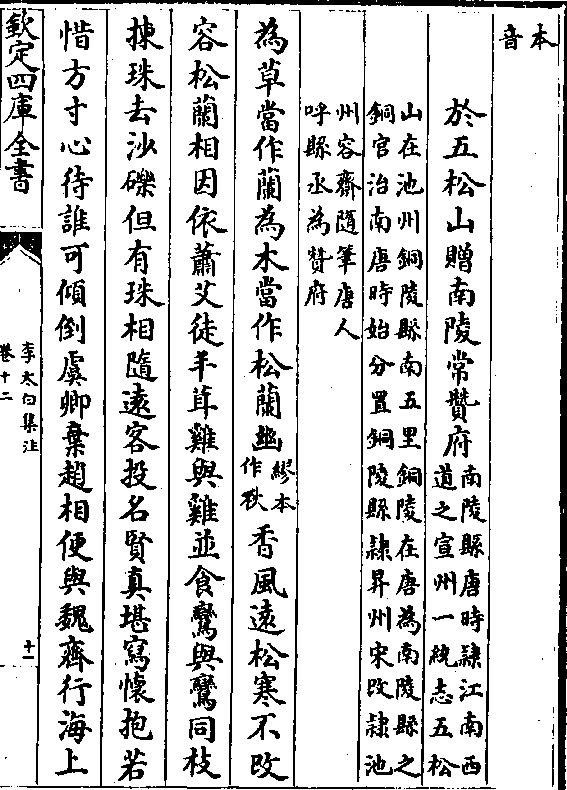 本
音
於五松山贈南陵常贊府
南陵縣唐時隸江南西
道之宣州一統志五松
山在池州銅陵縣南五里銅陵在唐為南陵縣之
銅官治南唐時始分置銅陵縣隸昇州宋改隸池
州容齋隨筆唐人
呼縣丞為贊府
為草當作蘭為木當作松蘭幽繆本作秋香風遠松寒不改
容松蘭相因依蕭艾徒丰茸雞與雞並食鸞與鸞同枝
揀珠去沙礫但有珠相隨遠客投名賢真堪寫懷抱若
惜方寸心待誰可傾倒虞卿棄趙相便與魏齊行海上
欽定四庫全書
李太白集注
卷十二
十一